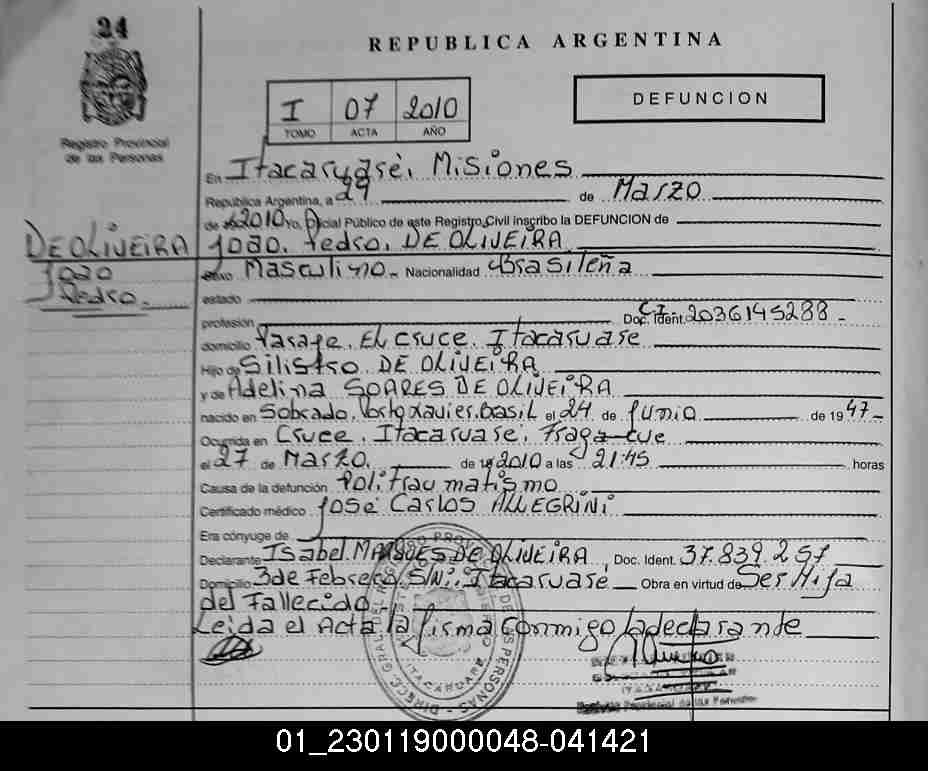 24
REPUBLICA ARGENTINA
I 07 2010
TOMO ACTA AÑO
DEFUNCION
Registro Provincial
de las Personas
En Itacaruaré, Misiones
República Argentina, a 29 de Marzo
de 2010 Yo, Oficial Público de este Registro Civil inscribo la DEFUNCION de
DE OLIVEIRA João, Pedro, DE OLIVEIRA
João
Pedro.
Sexo Masculino Nacionalidad Brasileña
estado
profesión Doc. Ident. C.I. 2036145288
domicilio Pasaje, EL Cruce, Itacaruaré
Hijo de Silistro DE OLIVEIRA
y de Adelina SOARES DE OLIVEIRA
nacido en Sobrado, Porto Xavier, Brasil el 24 de Junio de 1947
Ocurrida en Cruce, Itacaruare,
el 27 de Marzo de 2010 a las 21:45 horas
Causa de la defunción Politraumatismo
Certificado médico José Carlos ALLEGRINI
Era cónyuge de
Declarante Isabel MARQUES DE OLIVEIRA, Doc. Ident. 37.839.257
Domicilio 3 de Febrero S/N, Itacaruaré Obra en virtud de Ser Hija
del Fallecido
Leida el Acta la firma conmigo la declarante
Registro Provincial de las Personas
01_230119000048-041421